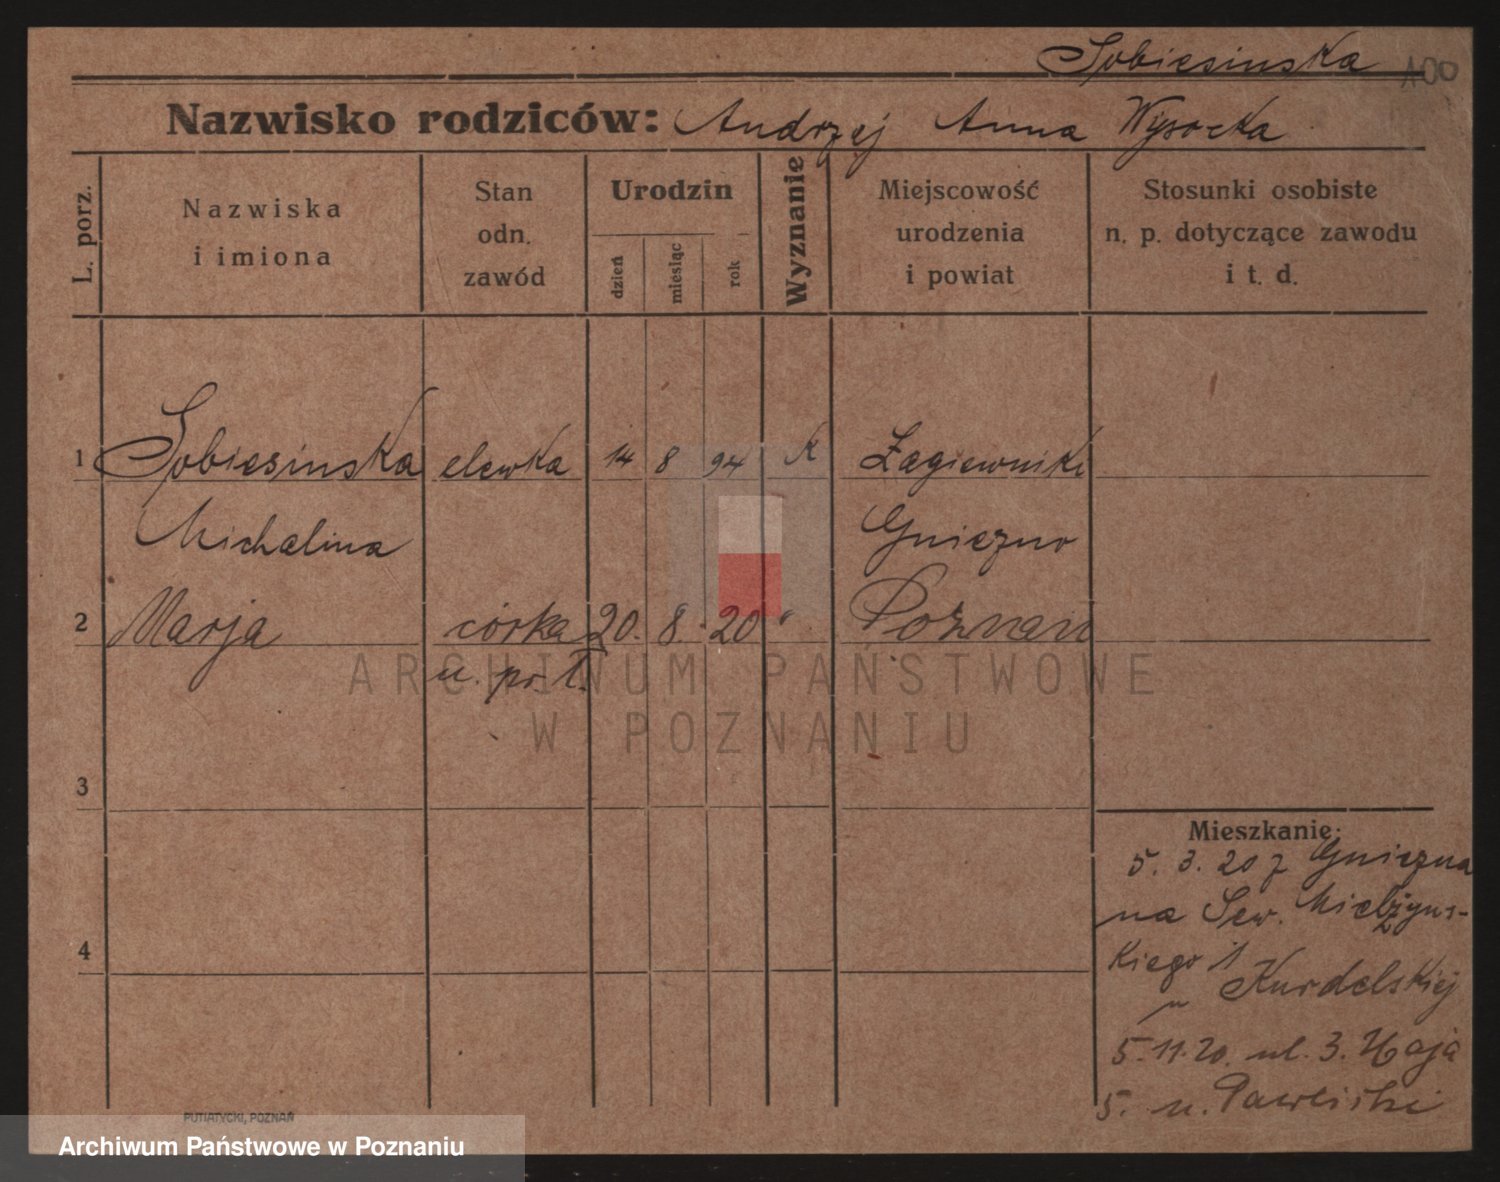 Sobiesinska
100
Nazwisko rodziców: Andrzej Anna Wysocka
L. porz.
Nazwiska
i imiona
Stan
odn.
zawód
Urodzin
dzień
miesiąc
rok
Wyznanie
Miejscowość
urodzenia
i powiat
Stosunki osobiste
n. p. dotyczące zawodu
i t. d.
1 Sobiesinska elewka 14 8 94 K Łagiewniki
Michalina Gniezno
2 Marja córka 20. 8. 20 " Poznań
3
4
Mieszkanie:
5. 3. 20 z Gniezna
na Sew. Mielżyńs-
kiego 1
Kurdelskiej
5.11.20. ul. 3. Maja
5. u.
ARCHIWUM PAŃSTWOWE
W POZNANIU
PUTIATYCKI, POZNAŃ
Archiwum Państwowe w Poznaniu